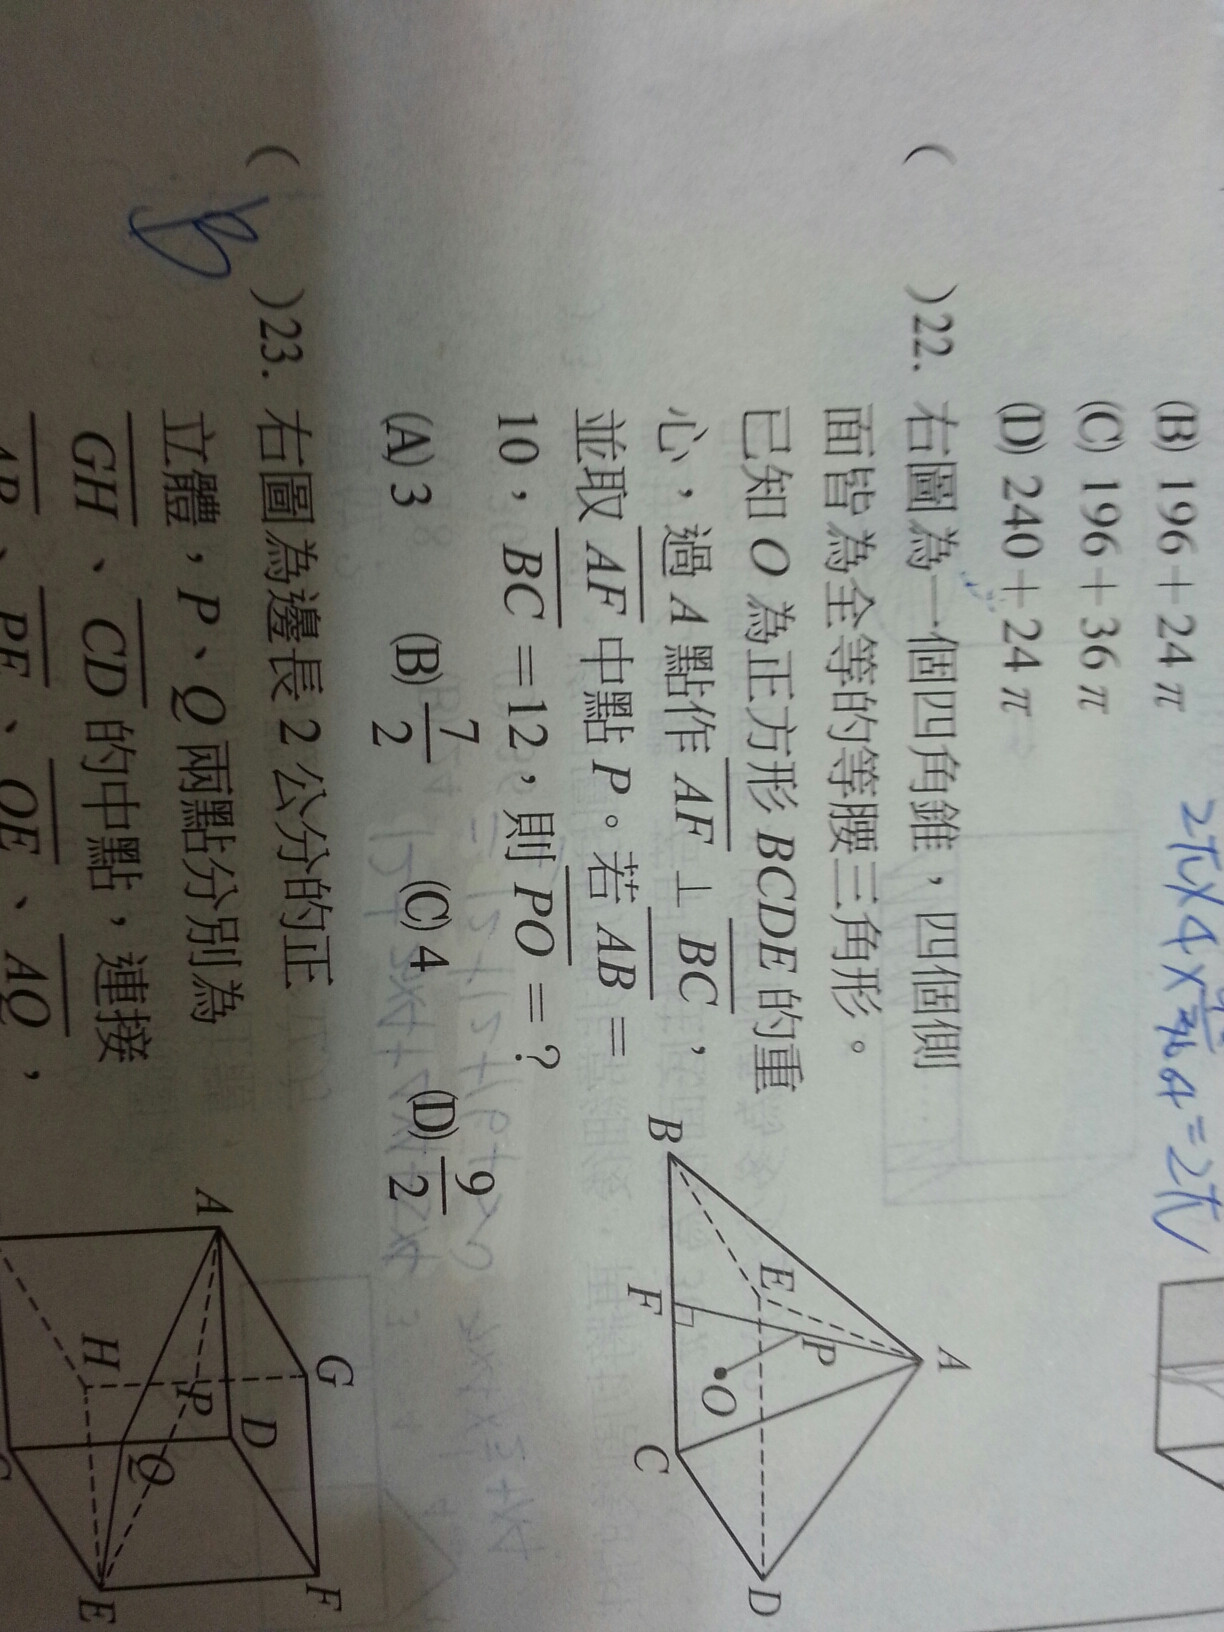 (B) 196＋24π
(C) 196＋36π
(D) 240＋24π
2π×4×
=2π
(　)22. 右圖為一個四角錐，四個側
面皆為全等的等腰三角形。
已知 O 為正方形 BCDE 的重
心，過 A 點作 AF ⊥ BC，
並取 AF 中點 P。若 AB＝
10，BC＝12，則 PO＝？
(A) 3　(B) 7/2　(C) 4　(D) 9/2
A
B
E
P
F
O
C
D
B
(　)23. 右圖為邊長 2 公分的正
立體，P、Q 兩點分別為
GH、CD 的中點，連接
AP、PE、QE、AQ，
A
G
H
P
D
Q
F
E